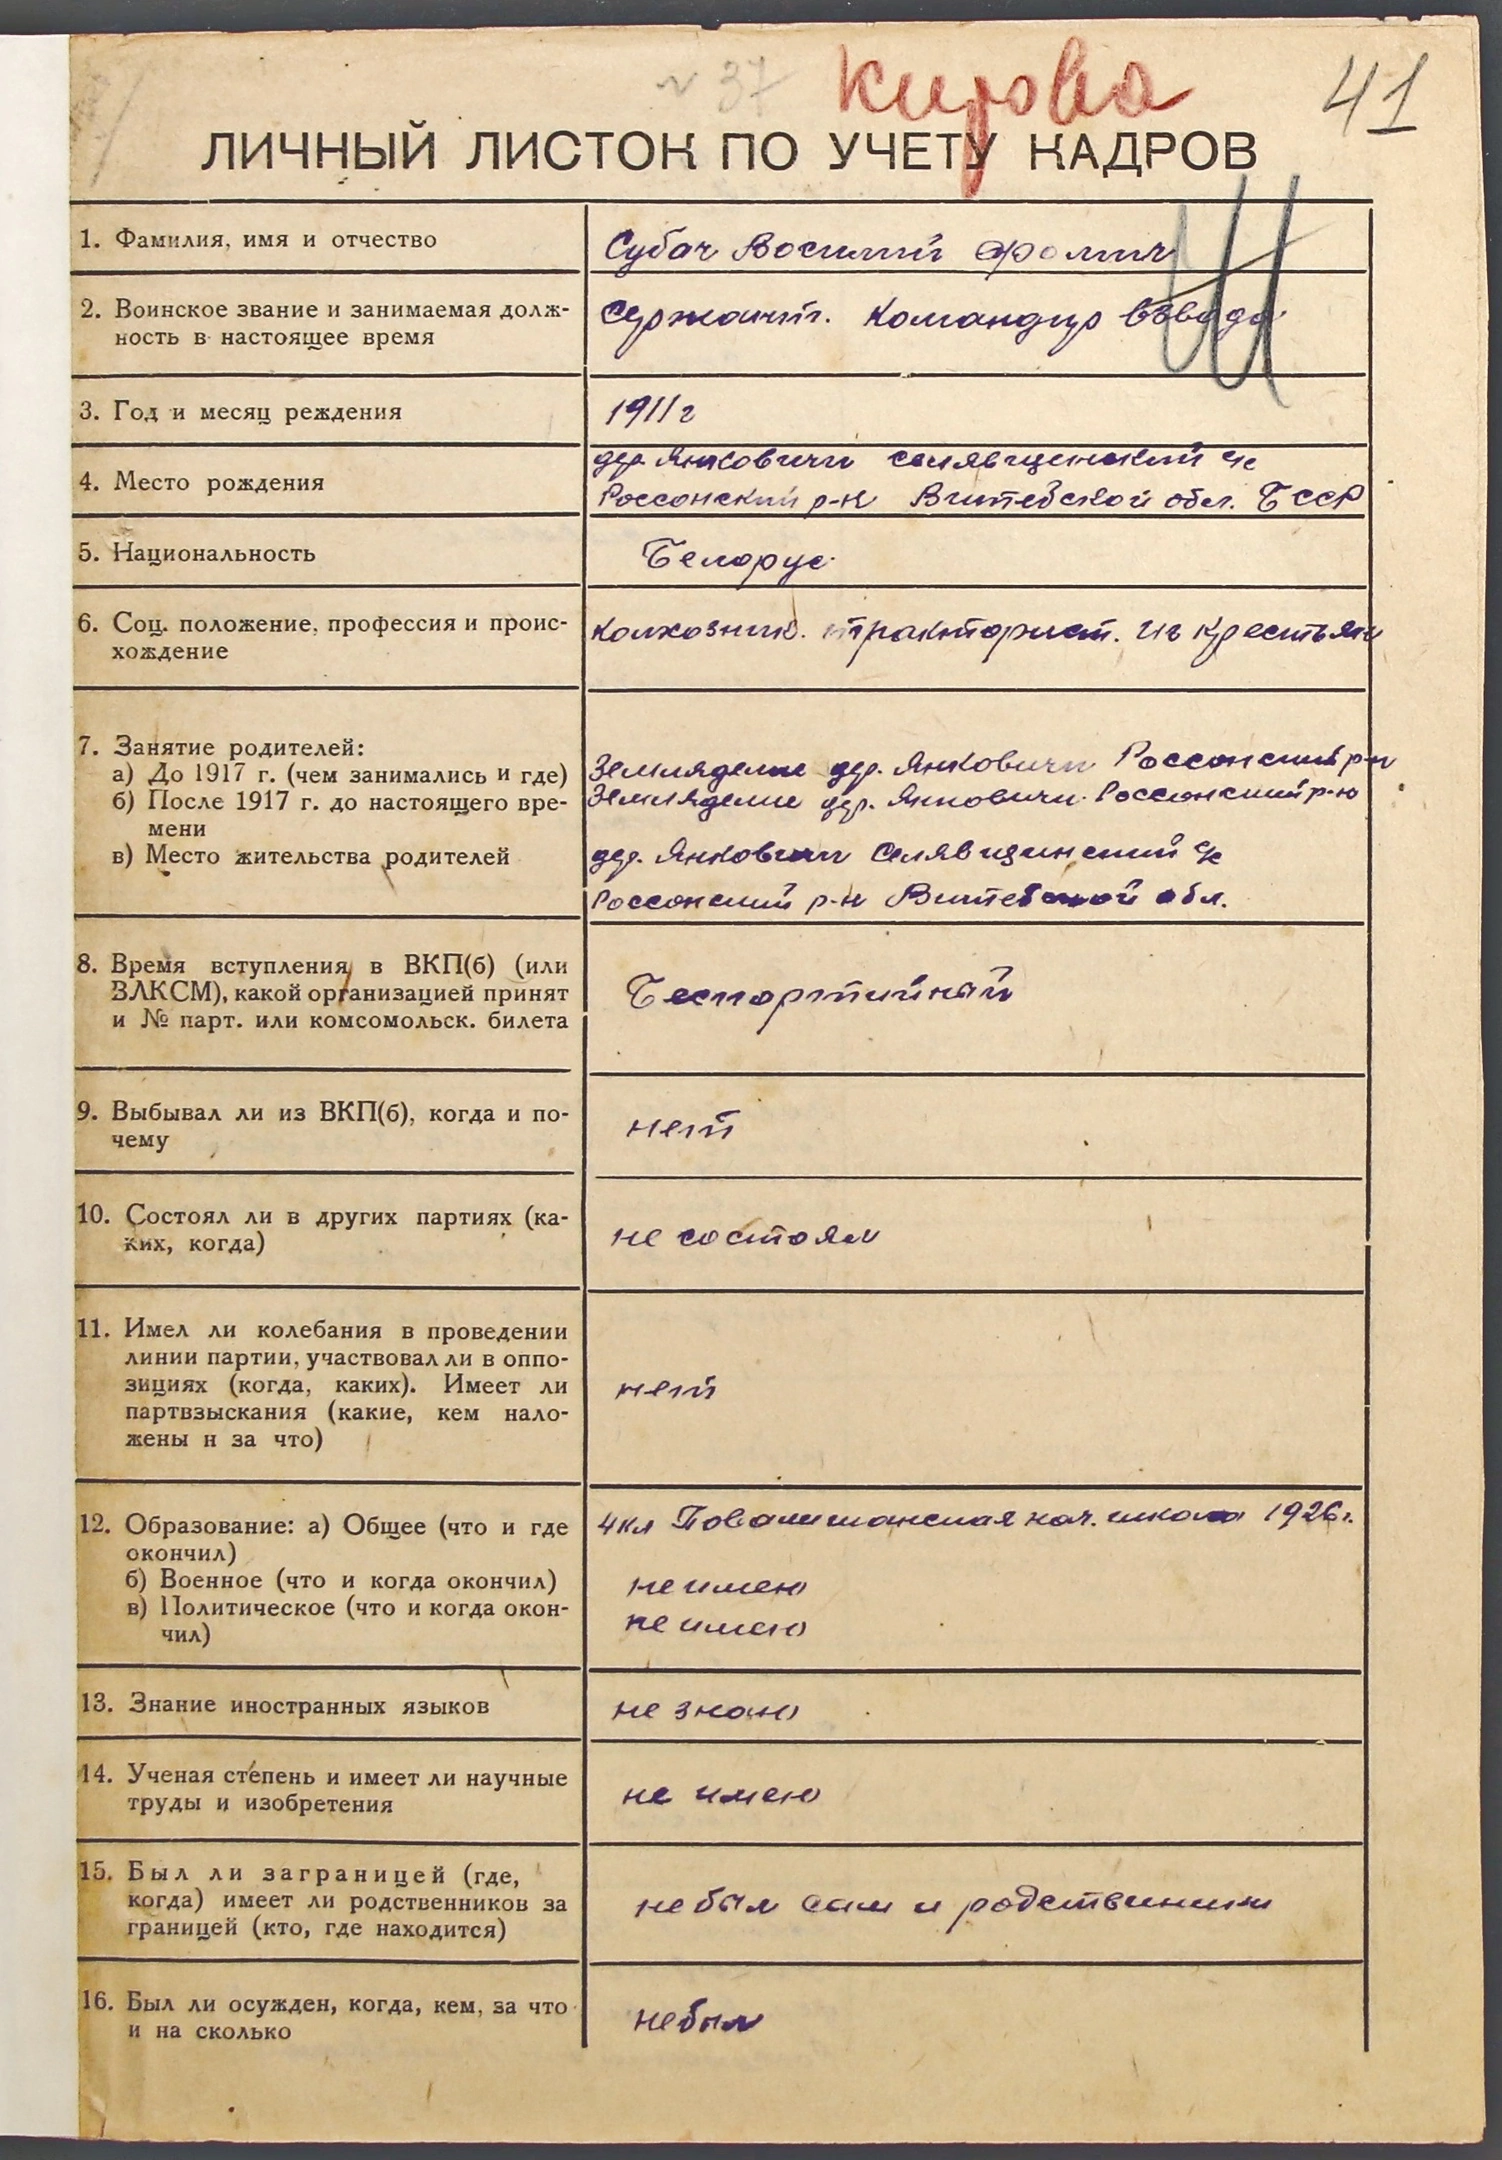 № 37 Кирова 41
ЛИЧНЫЙ ЛИСТОК ПО УЧЕТУ КАДРОВ
1. Фамилия, имя и отчество
Субач Василий Фомич
2. Воинское звание и занимаемая долж-
ность в настоящее время
Сержант. Командир взвода
3. Год и месяц реждения
1911 г
4. Место рождения
дер. Янковичи селявщинский с/с
Россонский р-н Витебской обл. БССР
5. Национальность
Белорус
6. Соц. положение, профессия и проис-
хождение
колхозник. тракторист. из крестьян
7. Занятие родителей:
а) До 1917 г. (чем занимались и где)
Земляделие дер. Янковичи Россонский р-н
б) После 1917 г. до настоящего вре-
мени
Земляделие дер. Янковичи Россонский р-н
в) Место жительства родителей
дер. Янковичи Селявщинский с/с
Россонский р-н Витебской обл.
8. Время вступления в ВКП(б) (или
ВЛКСМ), какой организацией принят
и № парт. или комсомольск. билета
Беспартийный
9. Выбывал ли из ВКП(б), когда и по-
чему
нет
10. Состоял ли в других партиях (ка-
ких, когда)
не состоял
11. Имел ли колебания в проведении
линии партии, участвовал ли в оппо-
зициях (когда, каких). Имеет ли
партвзыскания (какие, кем нало-
жены н за что)
нет
12. Образование: а) Общее (что и где
окончил)
4 кл Повалишанская нач. школа 1926 г.
б) Военное (что и когда окончил)
не имею
в) Политическое (что и когда окон-
чил)
не имею
13. Знание иностранных языков
не знаю
14. Ученая степень и имеет ли научные
труды и изобретения
не имею
15. Был ли заграницей (где,
когда) имеет ли родственников за
границей (кто, где находится)
не был сам и родственники
16. Был ли осужден, когда, кем, за что
и на сколько
не был